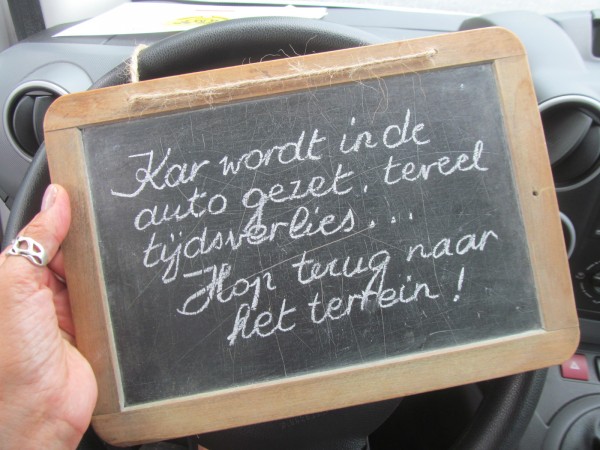 Kar wordt in de
auto gezet. teveel
tijdsverlies...
Hop terug naar
het terrein!